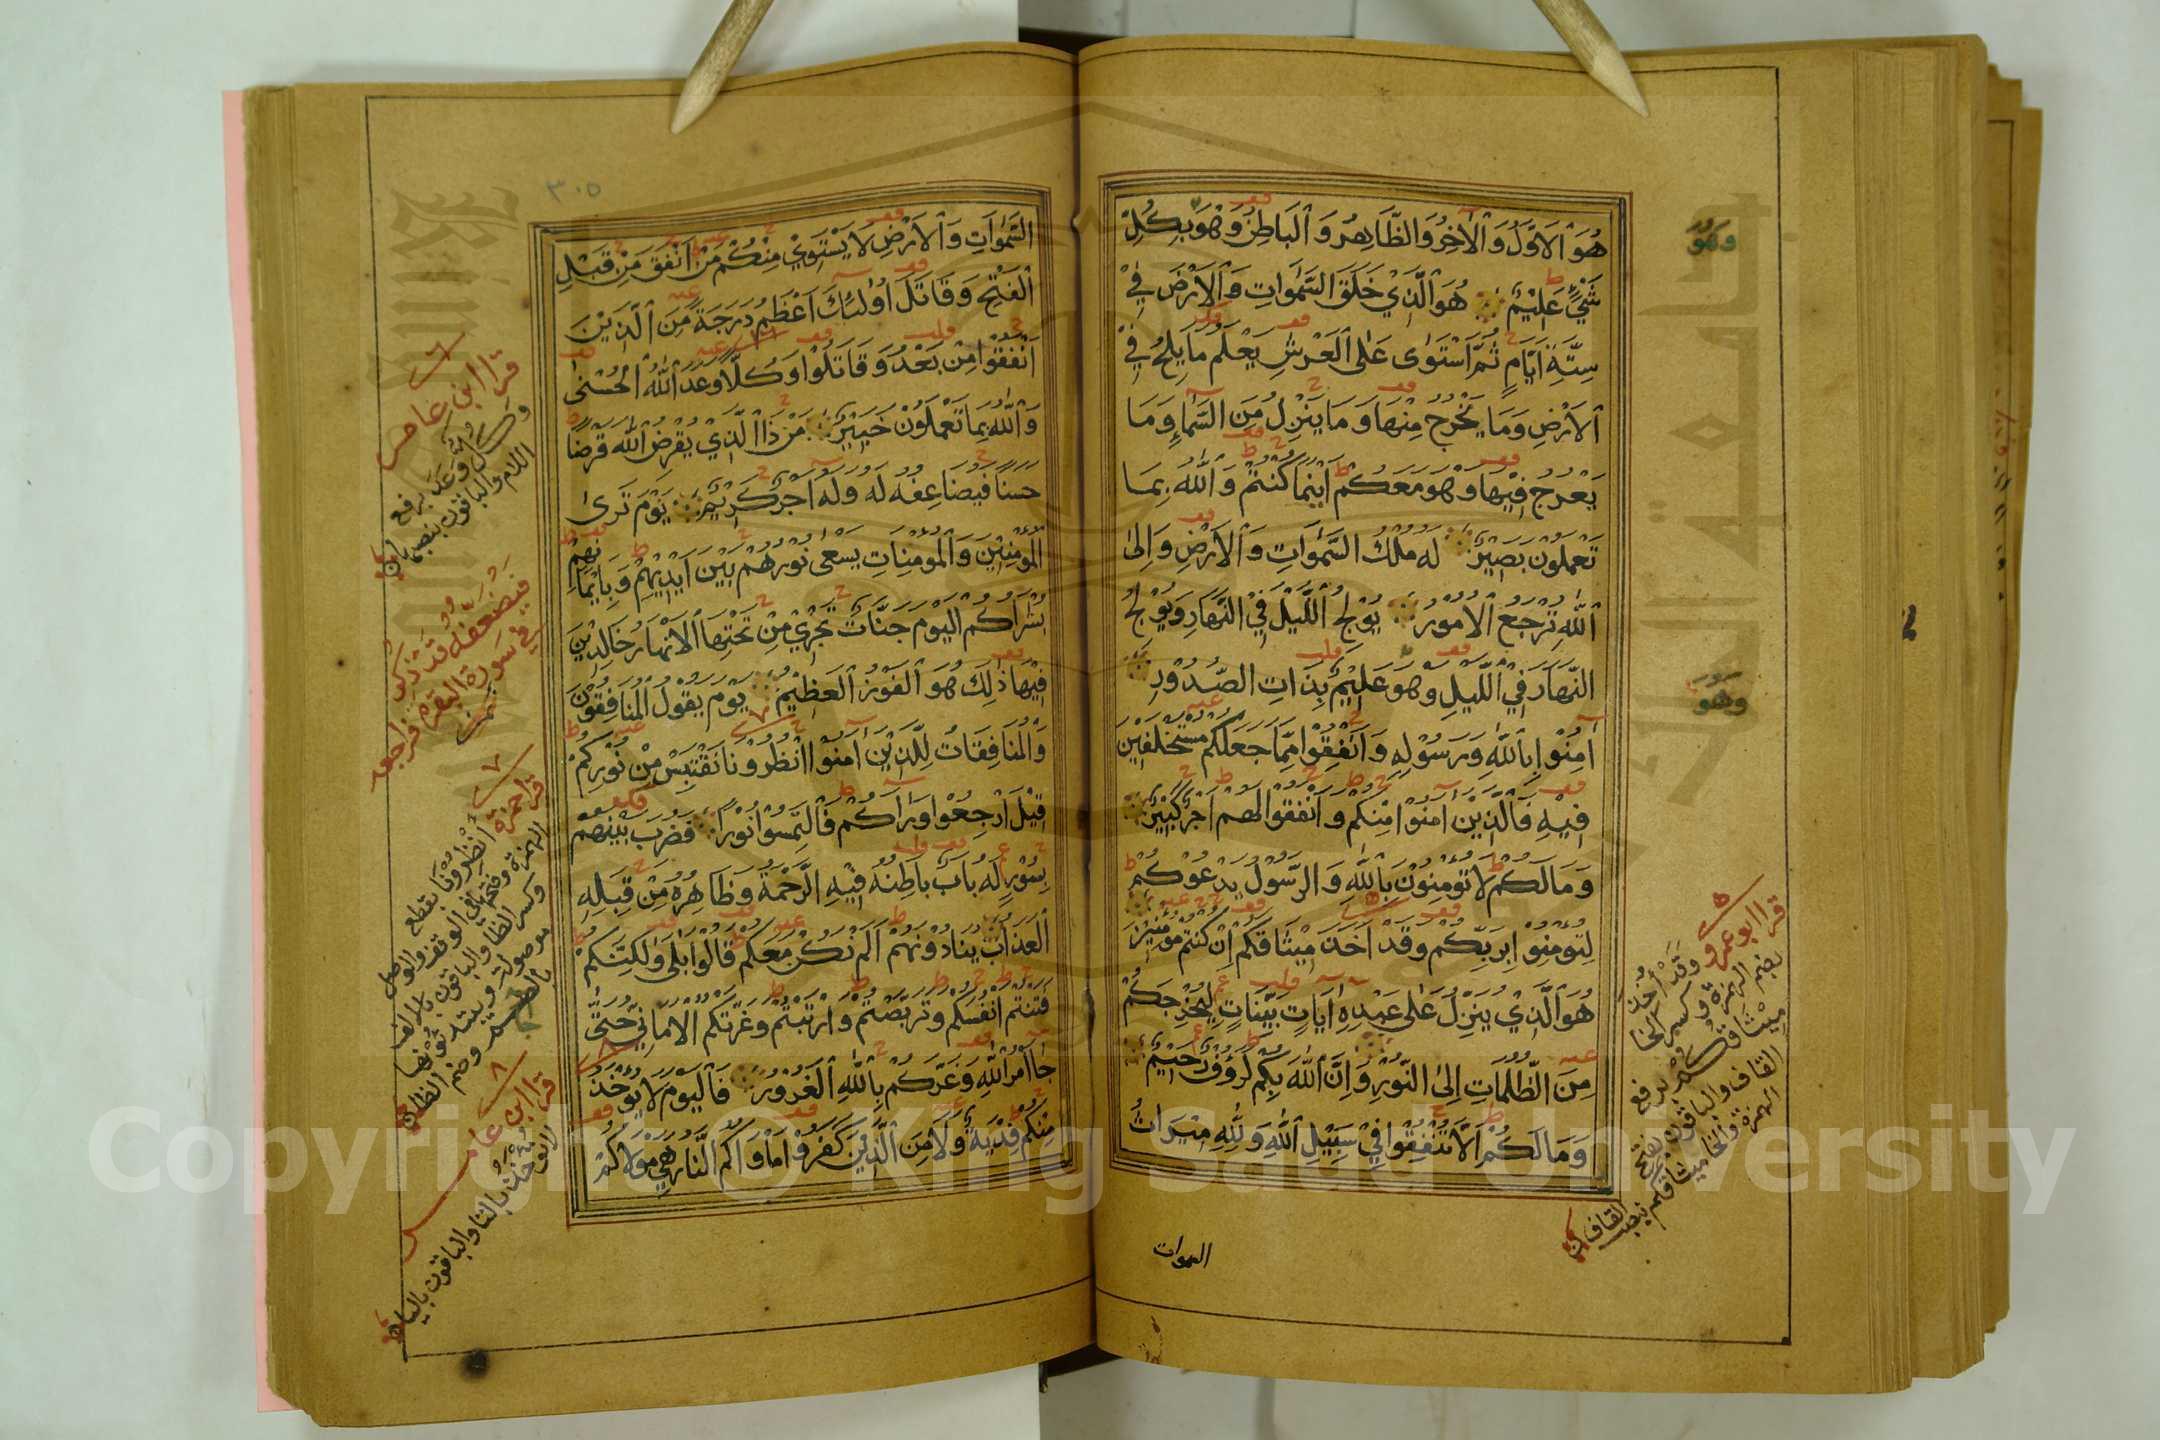 هُوَ ٱلْاَوَّلُ وَٱلْاٰخِرُ وَالظَّاهِرُ وَٱلْبَاطِنُ وَهُوَ بِكُلِّ
شَيْءٍ عَلِيْمٌ هُوَ ٱلَّذِيْ خَلَقَ السَّمٰوَاتِ وَٱلْاَرْضَ فِيْ
سِتَّةِ اَيَّامٍ ثُمَّ ٱسْتَوٰى عَلَى ٱلْعَرْشِ يَعْلَمُ مَا يَلِجُ فِيْ
ٱلْاَرْضِ وَمَا يَخْرُجُ مِنْهَا وَمَا يَنْزِلُ مِنَ السَّمَاءِ وَمَا
يَعْرُجُ فِيْهَا وَهُوَ مَعَكُمْ اَيْنَمَا كُنْتُمْ وَٱللّٰهُ بِمَا
تَعْمَلُوْنَ بَصِيْرٌ لَهُ مُلْكُ السَّمٰوَاتِ وَٱلْاَرْضِ وَاِلَى
ٱللّٰهِ تُرْجَعُ ٱلْاُمُوْرُ يُوْلِجُ ٱللَّيْلَ فِيْ النَّهَارِ وَيُوْلِجُ
النَّهَارَ فِيْ ٱللَّيْلِ وَهُوَ عَلِيْمٌ بِذَاتِ الصُّدُوْرِ
اٰمِنُوْا بِٱللّٰهِ وَرَسُوْلِهِ وَاَنْفِقُوْا مِمَّا جَعَلَكُمْ مُسْتَخْلَفِيْنَ
فِيْهِ فَٱلَّذِيْنَ اٰمَنُوْا مِنْكُمْ وَاَنْفَقُوْا لَهُمْ اَجْرٌ كَبِيْرٌ
وَمَا لَكُمْ لَا تُؤْمِنُوْنَ بِٱللّٰهِ وَالرَّسُوْلُ يَدْعُوْكُمْ
لِتُؤْمِنُوْا بِرَبِّكُمْ وَقَدْ اَخَذَ مِيْثَاقَكُمْ اِنْ كُنْتُمْ مُؤْمِنِيْنَ
هُوَ ٱلَّذِيْ يُنَزِّلُ عَلٰى عَبْدِهِ اٰيَاتٍ بَيِّنَاتٍ لِيُخْرِجَكُمْ
مِنَ الظُّلُمَاتِ اِلَى النُّوْرِ وَاِنَّ ٱللّٰهَ بِكُمْ لَرَؤُفٌ رَحِيْمٌ
وَمَا لَكُمْ اَلَّا تُنْفِقُوْا فِيْ سَبِيْلِ ٱللّٰهِ وَلِلّٰهِ مِيْرَاثُ
السموات
وَهُوَ
وَهُوَ
قرا ابو عمرو وقد أُخِذَ
بضم الهمزة وكسر الخا
مِيْثَاقُكُمْ برفع
القاف والباقون بفتح
الهمزة والخا ميثاقكم بنصب القاف
٣٠٥
السَّمٰوَاتِ وَٱلْاَرْضِ لَا يَسْتَوِيْ مِنْكُمْ مَنْ اَنْفَقَ مِنْ قَبْلِ
ٱلْفَتْحِ وَقَاتَلَ اُولٰئِكَ اَعْظَمُ دَرَجَةً مِنَ ٱلَّذِيْنَ
اَنْفَقُوْا مِنْ بَعْدُ وَقَاتَلُوْا وَكُلًّا وَعَدَ ٱللّٰهُ ٱلْحُسْنٰى
وَٱللّٰهُ بِمَا تَعْمَلُوْنَ خَبِيْرٌ مَنْ ذَا ٱلَّذِيْ يُقْرِضُ ٱللّٰهَ قَرْضًا
حَسَنًا فَيُضَاعِفُهُ لَهُ وَلَهُ اَجْرٌ كَرِيْمٌ يَوْمَ تَرَى
الْمُؤْمِنِيْنَ وَٱلْمُؤْمِنَاتِ يَسْعٰى نُوْرُهُمْ بَيْنَ اَيْدِيْهِمْ وَبِاَيْمَانِهِمْ
بُشْرَاكُمُ الْيَوْمَ جَنَّاتٌ تَجْرِيْ مِنْ تَحْتِهَا ٱلْاَنْهَارُ خَالِدِيْنَ
فِيْهَا ذٰلِكَ هُوَ ٱلْفَوْزُ ٱلْعَظِيْمُ يَوْمَ يَقُوْلُ ٱلْمُنَافِقُوْنَ
وَٱلْمُنَافِقَاتُ لِلَّذِيْنَ اٰمَنُوْا ٱنْظُرُوْنَا نَقْتَبِسْ مِنْ نُوْرِكُمْ
قِيْلَ ٱرْجِعُوْا وَرَاءَكُمْ فَٱلْتَمِسُوْا نُوْرًا فَضُرِبَ بَيْنَهُمْ
بِسُوْرٍ لَهُ بَابٌ بَاطِنُهُ فِيْهِ الرَّحْمَةُ وَظَاهِرُهُ مِنْ قِبَلِهِ
ٱلْعَذَابُ يُنَادُوْنَهُمْ اَلَمْ نَكُنْ مَعَكُمْ قَالُوْا بَلٰى وَلٰكِنَّكُمْ
فَتَنْتُمْ اَنْفُسَكُمْ وَتَرَبَّصْتُمْ وَٱرْتَبْتُمْ وَغَرَّتْكُمُ الْاَمَانِيُّ حَتّٰى
جَاءَ اَمْرُ ٱللّٰهِ وَغَرَّكُمْ بِٱللّٰهِ ٱلْغَرُوْرُ فَٱلْيَوْمَ لَا يُؤْخَذُ
مِنْكُمْ فِدْيَةٌ وَلَا مِنَ ٱلَّذِيْنَ كَفَرُوْا مَأْوَاكُمُ النَّارُ هِيَ مَوْلَاكُمْ
٦
قرا ابن عامر
وكلٌّ وعد برفع
اللام والباقون بنصبها
فيضعفه قد ذكر
في سورة البقرة فراجعه
٧
قرا حمزة أَنْظِرُوْنَا بقطع
الهمزة وفتحها في الوقف والوصل
وكسر الظا والباقون بالالف
موصولة ويبتدئونها
بالضم وضم الظا
٨
قرا ابن عامر
لا تؤخذ بالتا والباقون باليا
Copyright © King Saud University